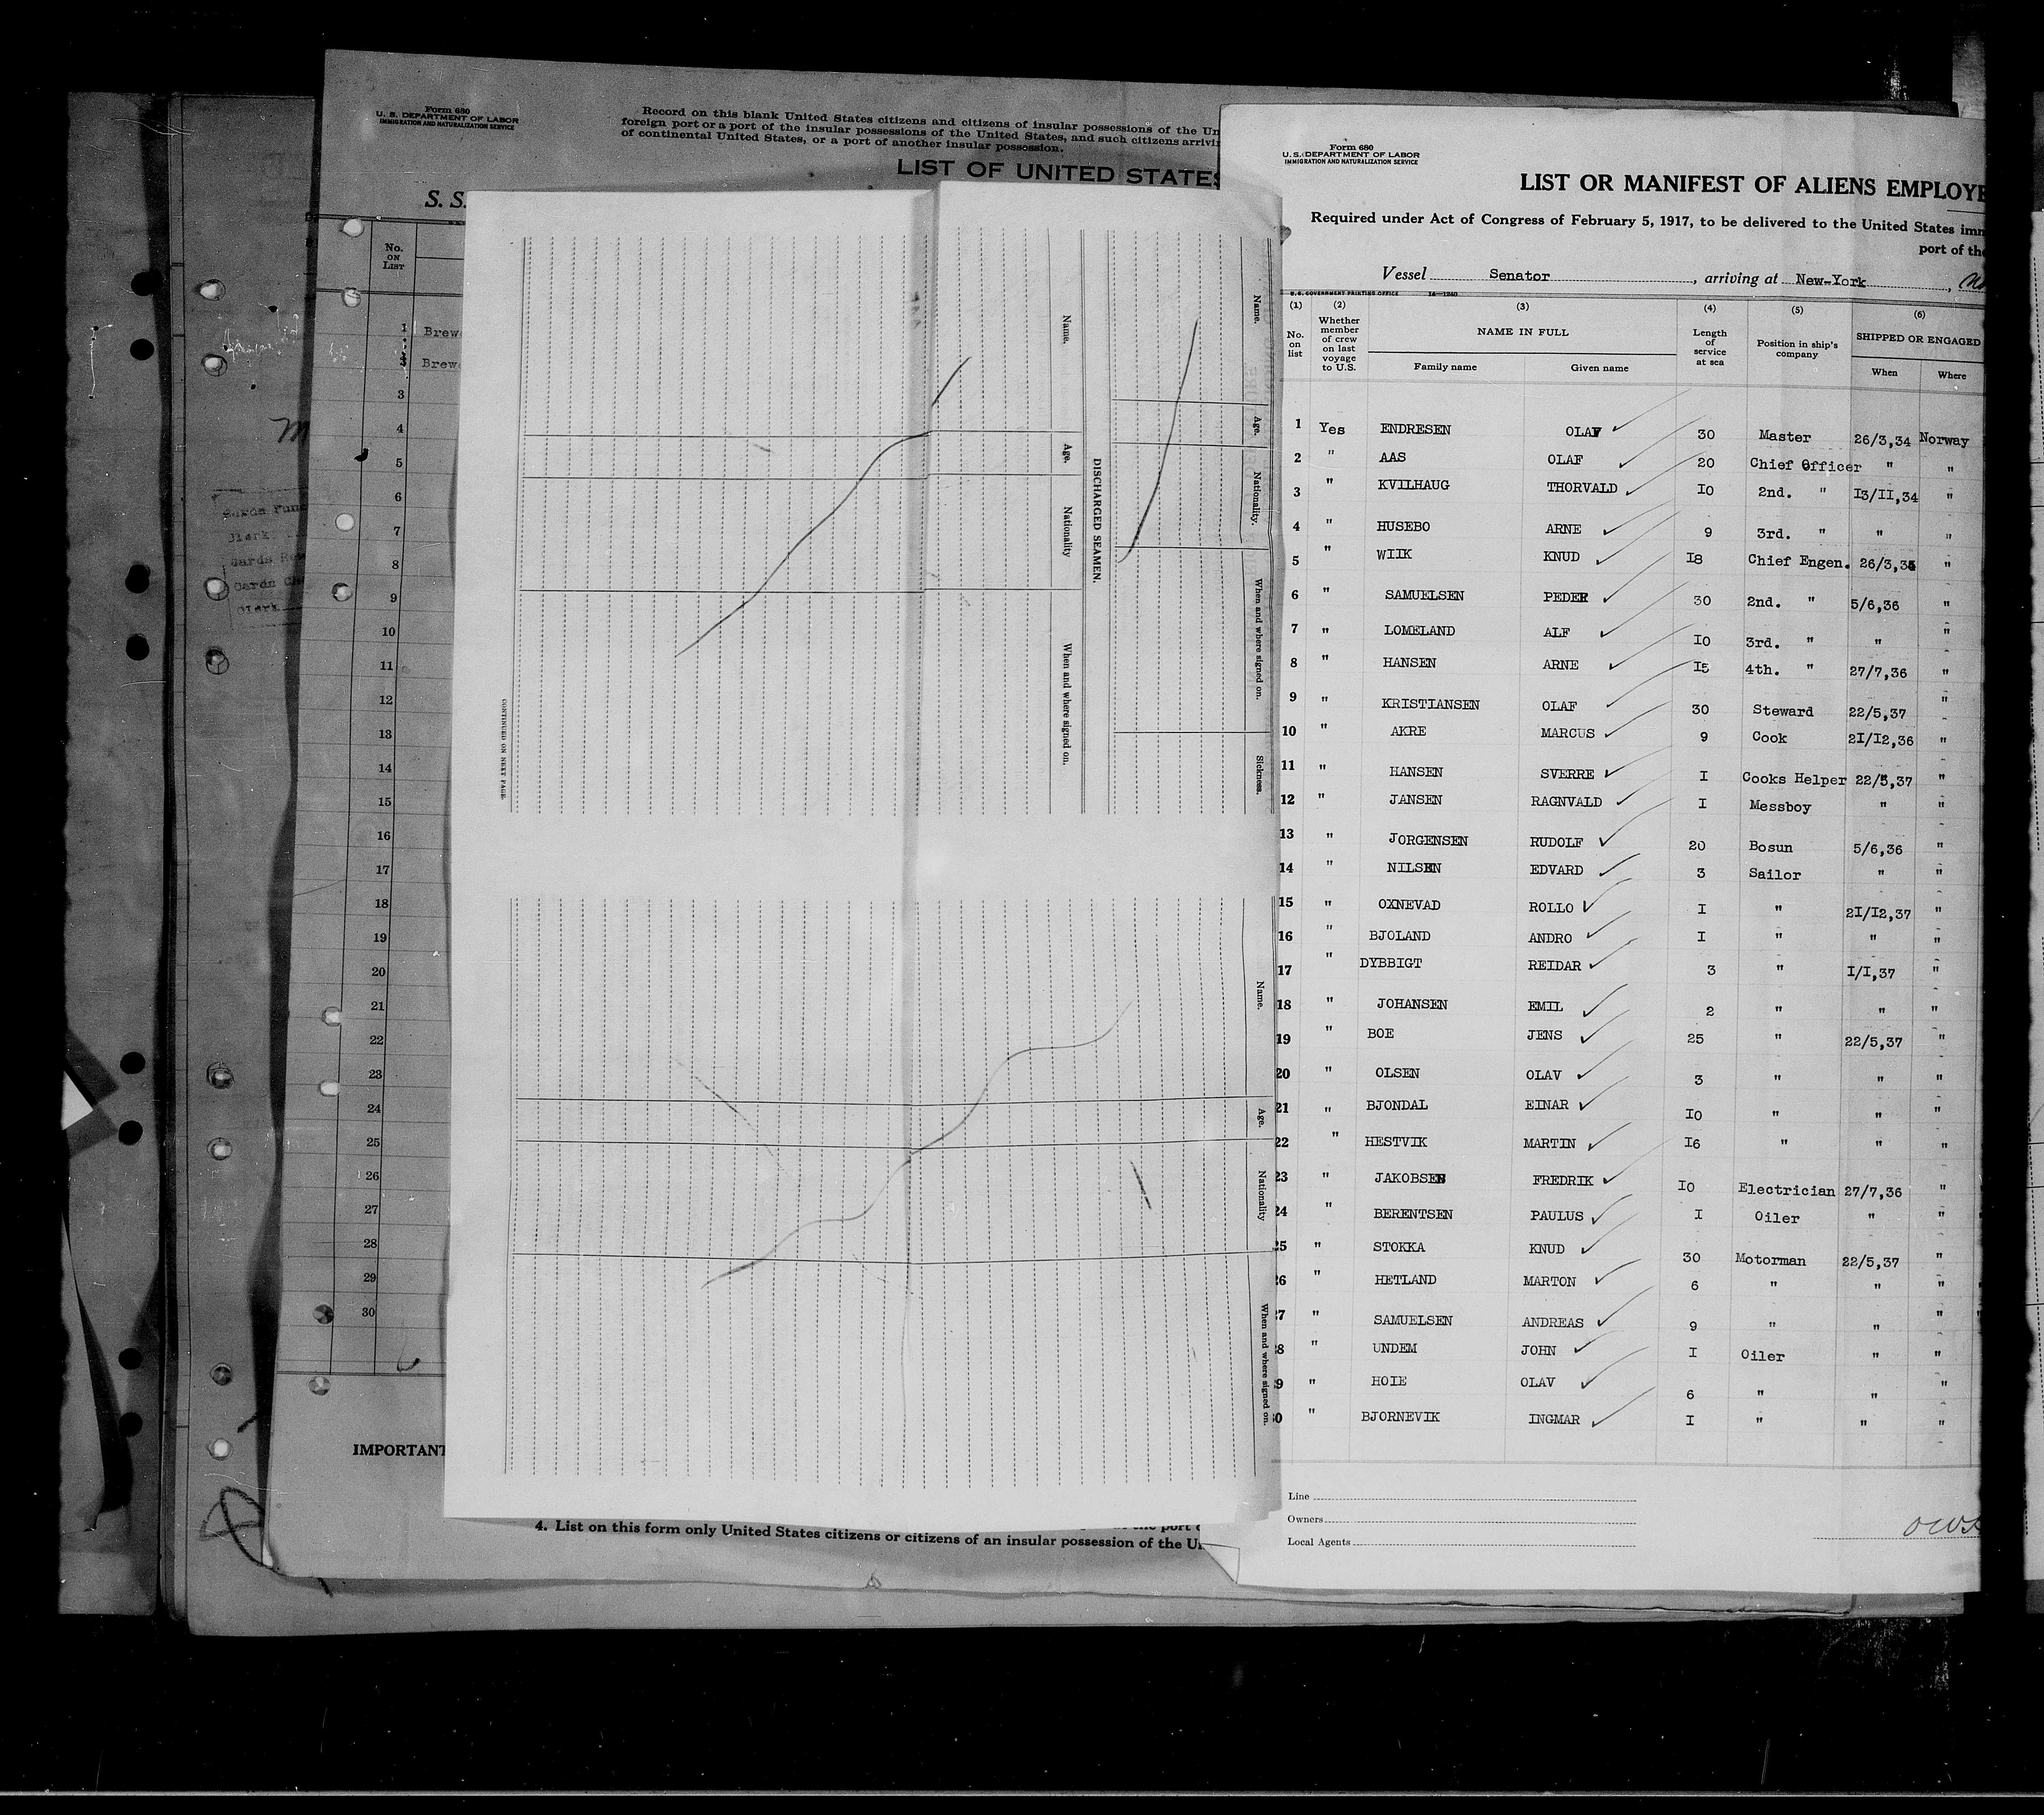 Form 680
U. S. DEPARTMENT OF LABOR
IMMIGRATION AND NATURALIZATION SERVICE
Record on this blank United States citizens and citizens of insular possessions of the Un
foreign port or a port of the insular possessions of the United States, and such citizens arrivi
of continental United States, or a port of another insular possession.
LIST OF UNITED STATES
S. S.
No. ON LIST
1 Brew
2 Brew
3
4
5
6
7
8
9
10
11
12
13
14
15
16
17
18
19
20
21
22
23
24
25
26
27
28
29
30
IMPORTANT
4. List on this form only United States citizens or citizens of an insular possession of the U
Name. Age. Nationality. When and where signed on. Sickness.
DISCHARGED SEAMEN.
Name. Age. Nationality When and where signed on.
CONTINUED ON NEXT PAGE.
Name. Age. Nationality When and where signed on.
Form 680
U. S. DEPARTMENT OF LABOR
IMMIGRATION AND NATURALIZATION SERVICE
LIST OR MANIFEST OF ALIENS EMPLOYE
Required under Act of Congress of February 5, 1917, to be delivered to the United States imm
port of the
Vessel Senator, arriving at New-York,
U. S. GOVERNMENT PRINTING OFFICE 14—1240
(1) (2) (3) (4) (5) (6)
No. on list Whether member of crew on last voyage to U.S. NAME IN FULL Length of service at sea Position in ship's company SHIPPED OR ENGAGED
Family name Given name When Where
1 Yes ENDRESEN OLAF 30 Master 26/3,34 Norway
2 " AAS OLAF 20 Chief Officer " "
3 " KVILHAUG THORVALD IO 2nd. " I3/II,34 "
4 " HUSEBO ARNE 9 3rd. " " "
5 " WIIK KNUD I8 Chief Engen. 26/3,34 "
6 " SAMUELSEN PEDER 30 2nd. " 5/6,36 "
7 " LOMELAND ALF IO 3rd. " " "
8 " HANSEN ARNE I5 4th. " 27/7,36 "
9 " KRISTIANSEN OLAF 30 Steward 22/5,37 "
10 " AKRE MARCUS 9 Cook 2I/I2,36 "
11 " HANSEN SVERRE I Cooks Helper 22/5,37 "
12 " JANSEN RAGNVALD I Messboy " "
13 " JORGENSEN RUDOLF 20 Bosun 5/6,36 "
14 " NILSEN EDVARD 3 Sailor " "
15 " OXNEVAD ROLLO I " 2I/I2,37 "
16 " BJOLAND ANDRO I " " "
17 " DYBBIGT REIDAR 3 " I/I,37 "
18 " JOHANSEN EMIL 2 " " "
19 " BOE JENS 25 " 22/5,37 "
20 " OLSEN OLAV 3 " " "
21 " BJONDAL EINAR IO " " "
22 " HESTVIK MARTIN I6 " " "
23 " JAKOBSEN FREDRIK IO Electrician 27/7,36 "
24 " BERENTSEN PAULUS I Oiler " "
25 " STOKKA KNUD 30 Motorman 22/5,37 "
26 " HETLAND MARTON 6 " " "
27 " SAMUELSEN ANDREAS 9 " " "
28 " UNDEM JOHN I Oiler " "
29 " HOIE OLAV 6 " " "
30 " BJORNEVIK INGMAR I " " "
Line
Owners
Local Agents